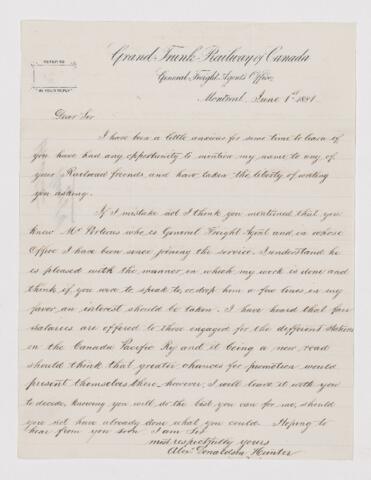 REFER TO
IN YOUR REPLY
Grand Trunk Railway of Canada
General Freight Agents Office,
Montreal, June 1st 1881.
Dear Sir
I have been a little anxious for some time to learn if
you have had any opportunity to mention my name to any of
your Railroad friends and have taken the liberty of writing
you asking.
If I mistake not I think you mentioned that you
knew Mr who is General Freight Agent and in whose
Office I have been since joining the service. I understand he
is pleased with the manner in which my work is done and
think if you were to speak to, or drop him a few lines, in my
favor an interest should be taken. I have heard that fair
salaries are offered to those engaged for the different Stations
on the Canada Pacific Ry and it being a new road
should think that greater chances for promotion would
present themselves there, however, I will leave it with you
to decide, knowing you will do the best you can for me, should
you not have already done what you could. Hoping to
hear from you soon I am Sir
most respectfully yours
Alex. Donaldson Hunter